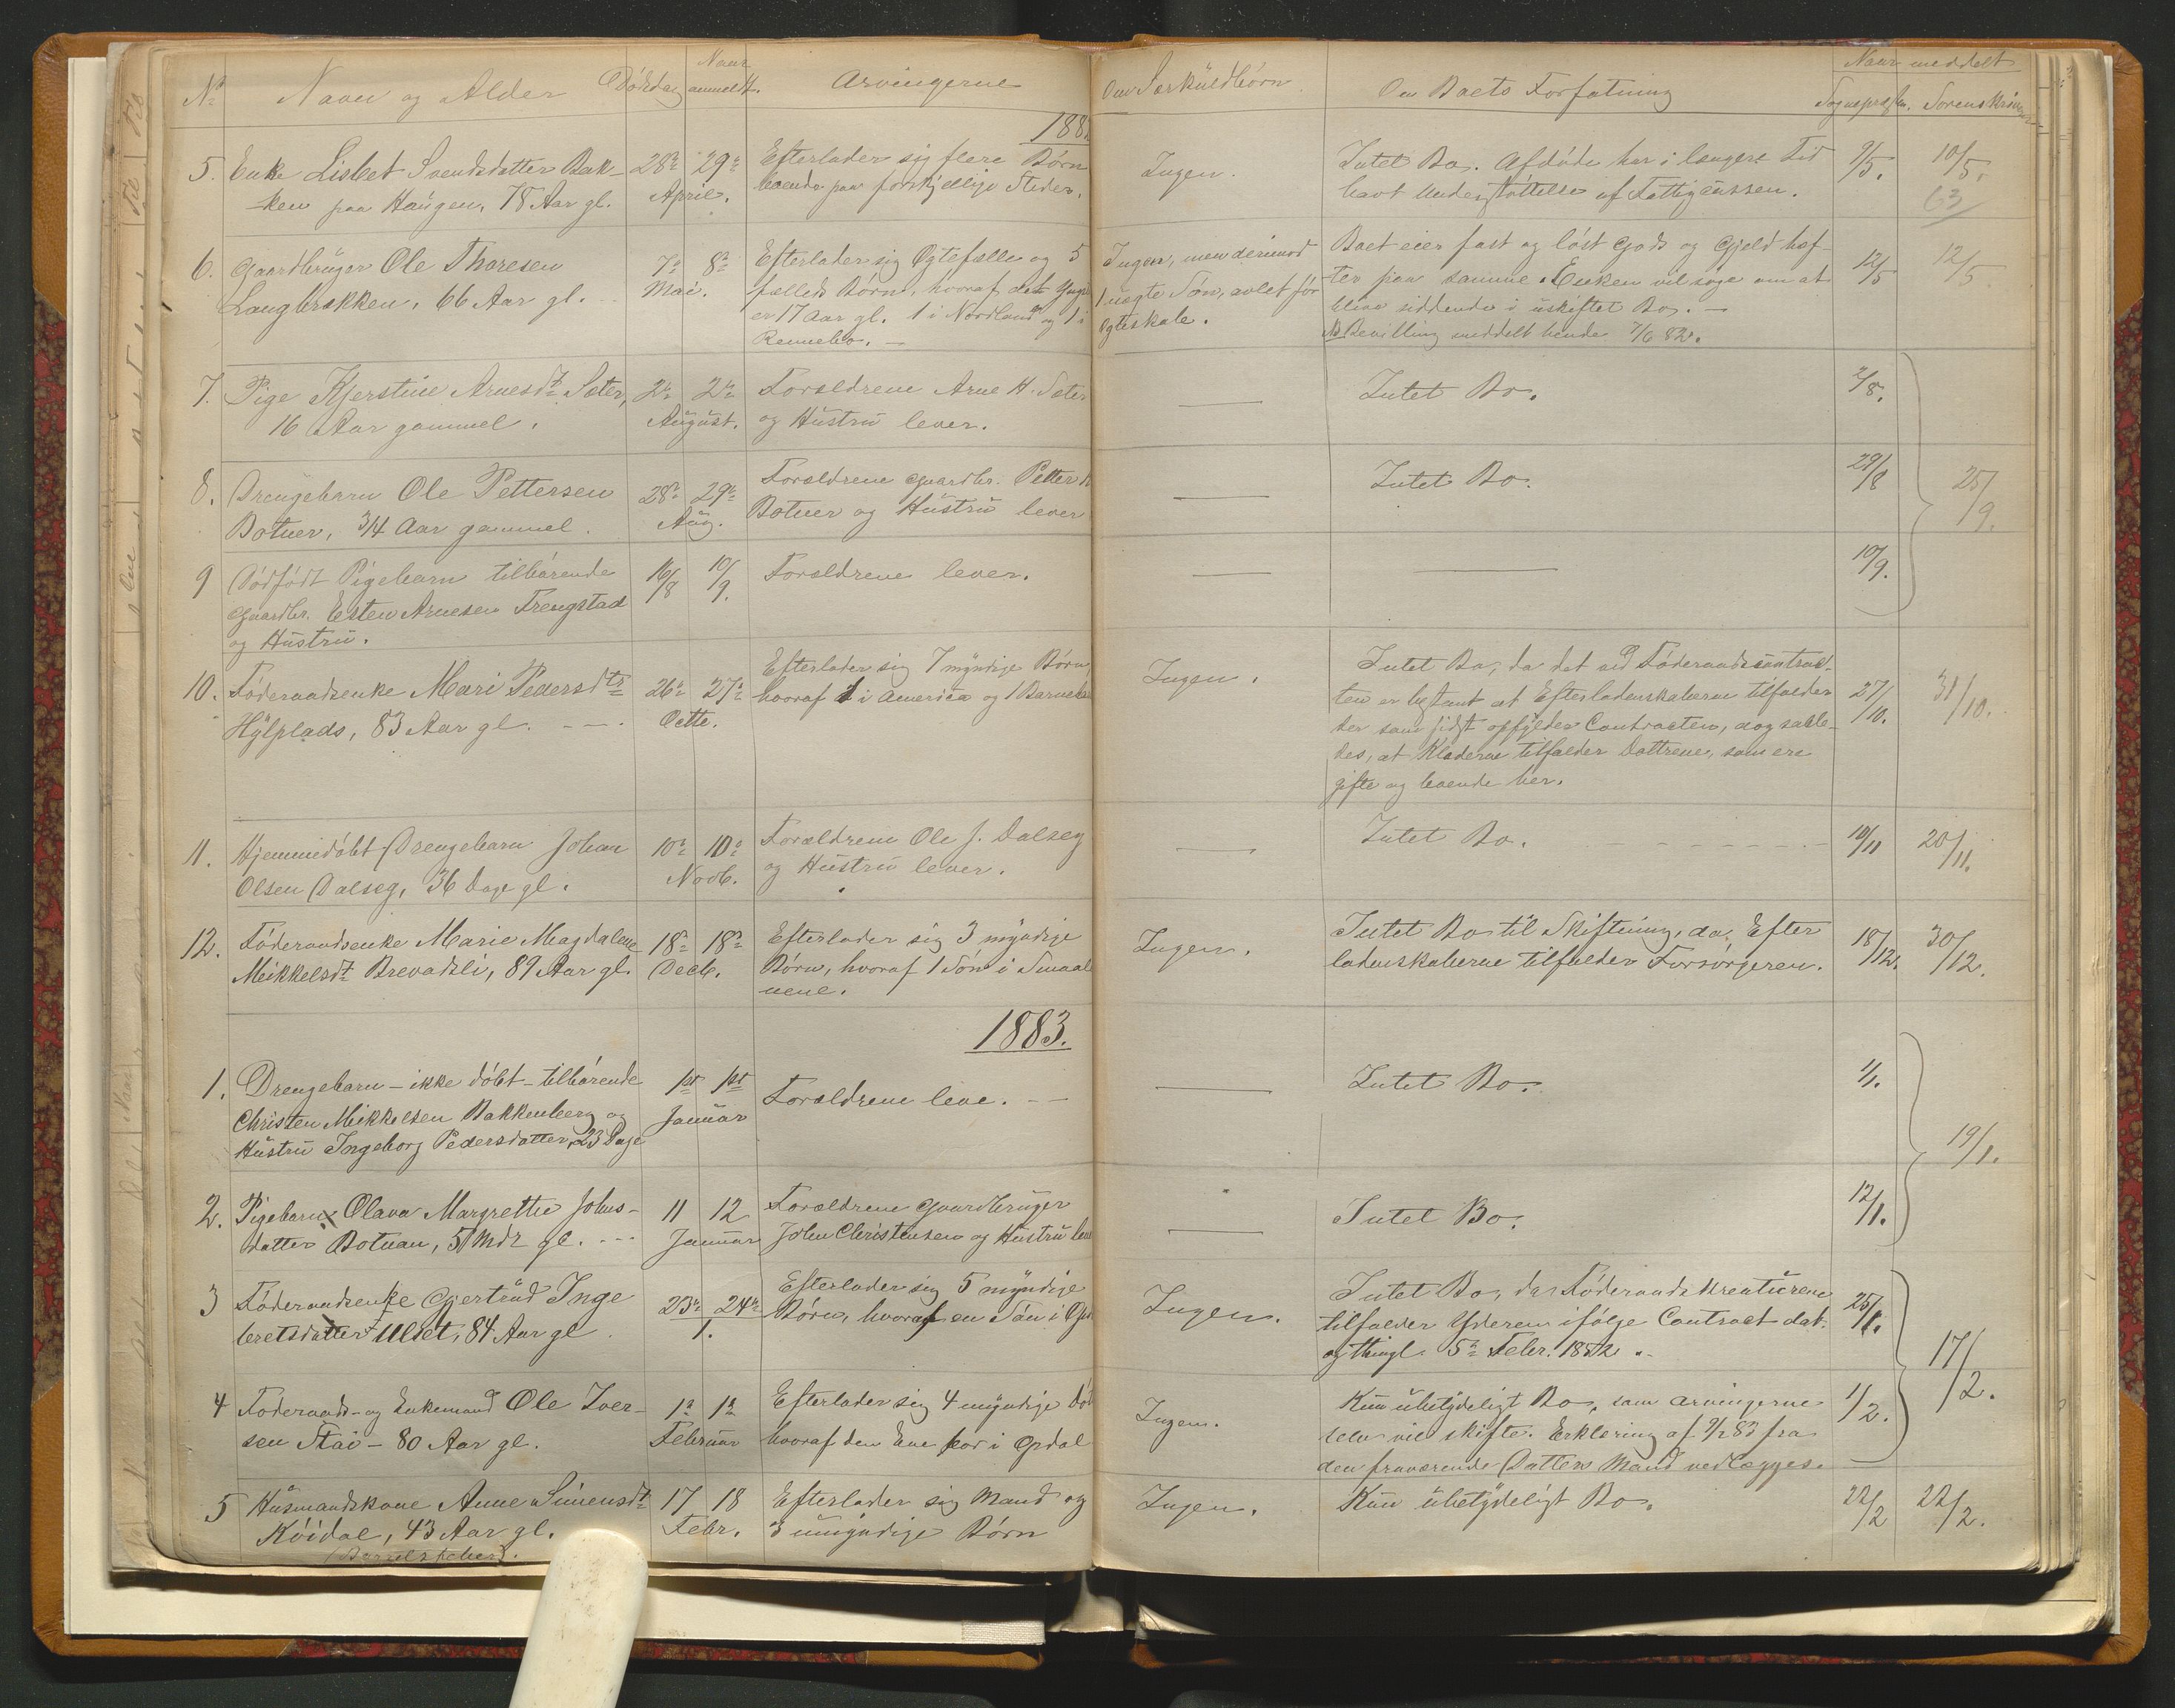 No Navn og Alder Dödsdag Naar anmeldt. Arvingerne Om Særkuldbörn. Om Boets Forfatning Naar meddelt
Sognepræsten. Sorenskriver
188
5. Enke Lisbet Svendsdatter Bak- 28de 29de Efterlader sig flere Börn Ingen. Intet Bo. Afdöde har i længere Tid 9/5. 10/5.
ken paa Haugen, 78 Aar gl. April. boende paa forskjellige Steder. havt Understöttelse af Fattigcassen. 63
6. Gaardbruger Ole Thoresen 7de 8de Efterlader sig Egtefælle og 5 Ingen, men derimod Boet eier fast og löst Gods og Gjeld hæf- 12/5 12/5
Langbrækken, 66 Aar gl. Mai. fælleds Börn, hvoraf det 1 uægte Sön, avlet för ter paa samme. Enken vil söge om at
er 17 Aar gl. 1 i Nordland og 1 i Egteskabe. blive siddende i uskiftet Bo. —
Rennebo. — NB Bevilling meddelt hende 7/6 82.
7. Pige Kjerstine Arnesdt Sæter, 2de 2de Forældrene Arne H. Sæter — Intet Bo. 2/8.
16 Aar gammel. August. og Hustru lever.
8. Drengebarn Ole Pettersen 28de 29de Forældrene Gaardbr. Petter — Intet Bo. 29/8 25/9.
Botner, 3/4 Aar gammel. Aug. Botner og Hustru lever
9 Dödfödt Pigebarn tilhörende 16/8 10/9. Forældrene lever. — — 10/9.
Gaardbr. Esten Arnesen Trengstad
og Hustru.
10. Föderaadsenke Mari Pedersdtr 26de 27de Efterlader sig 7 myndige Börn Ingen. Intet Bo, da det ved Föderaadscontrac- 27/10. 31/10.
Hylplads, 83 Aar gl. Octbr. hvoraf 1 i America og 1 ten er bestemt at Efterladenskaberne tilfalder
den som sidst opfylder Contracten, dog saale-
des, at Klæderne tilfalder Döttrene, som ere
gifte og boende her.
11. Hjemmedöbt Drengebarn Johan 10de 10de Forældrene Ole J. Dalseg — Intet Bo. 10/11 20/11.
Olsen Dalseg, 36 Dage gl. Novb. og Hustru lever.
12. Föderaadsenke Marie Magdalene 18de 18de Efterlader sig 3 myndige Ingen. Intet Bo til Skiftning, da Efter 18/12. 30/12.
Mikkelsdt Brevadsli, 89 Aar gl. Decb. Börn, hvoraf 1 Sön i Smaale ladenskaberne tilfalder Forsörgeren.
nene.
1883.
1. Drengebarn – ikke döbt – tilhörende 1ste 1ste Forældrene leve. — — Intet Bo. 1/1. 19/1.
Christen Mikkelsen Bakkenberg og Januar
Hustru Ingeborg Pedersdatter, 23 Dage
2. Pigebarn Olava Margrethe Johns- 11 12 Forældrene Gaardbruger — Intet Bo. 12/1.
datter Botnan, 5 Mdr gl. Januar John Christensen og Hustru leve
3 Föderaadsenke Gjertrud Inge 23de 24de Efterlader sig 5 myndige Ingen. Intet Bo, da Föderaadskreaturerne 25/1. 17/2.
bretsdatter Ulset, 84 Aar gl. 1. Börn, hvoraf en Sön i tilfalder Yderen ifölge Contract dat.
og thingl. 5te Febr. 1852.
4 Föderaads- og Enkemand Ole Iver- 1ste 1ste Efterlader sig 4 myndige Ingen. Kun ubetydeligt Bo, som Arvingerne 1/2.
sen Stai – 80 Aar gl. Februar hvoraf den Ene bor i Opdal selv vil skifte. Erklæring af 9/2 83 fra
den fraværende Datters Mand vedlægges.
5 Husmandskone Anne Simensdt 17 18 Efterlader sig Mand og Ingen. Kun ubetydeligt Bo. 22/2 22/2.
Köidal, 43 Aar gl. Febr. 3 umyndige Börn